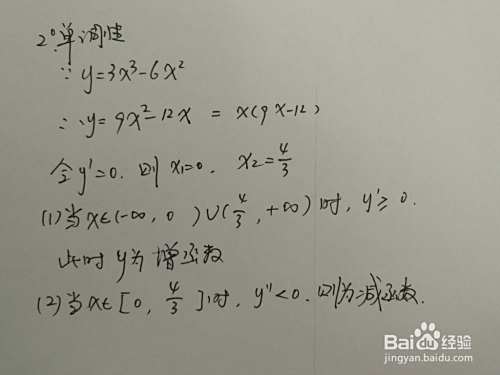 2°单调性
∵ y=3x³-6x²
∴ y'=9x²-12x = x(9x-12)
令y'=0. 则 x₁=0, x₂=4/3
(1)当x∈(-∞, 0)∪(4/3, +∞)时, y'≥0.
此时 y为增函数
(2)当x∈[0, 4/3]时, y''<0. 则为减函数.
Baidu经验
jingyan.baidu.com